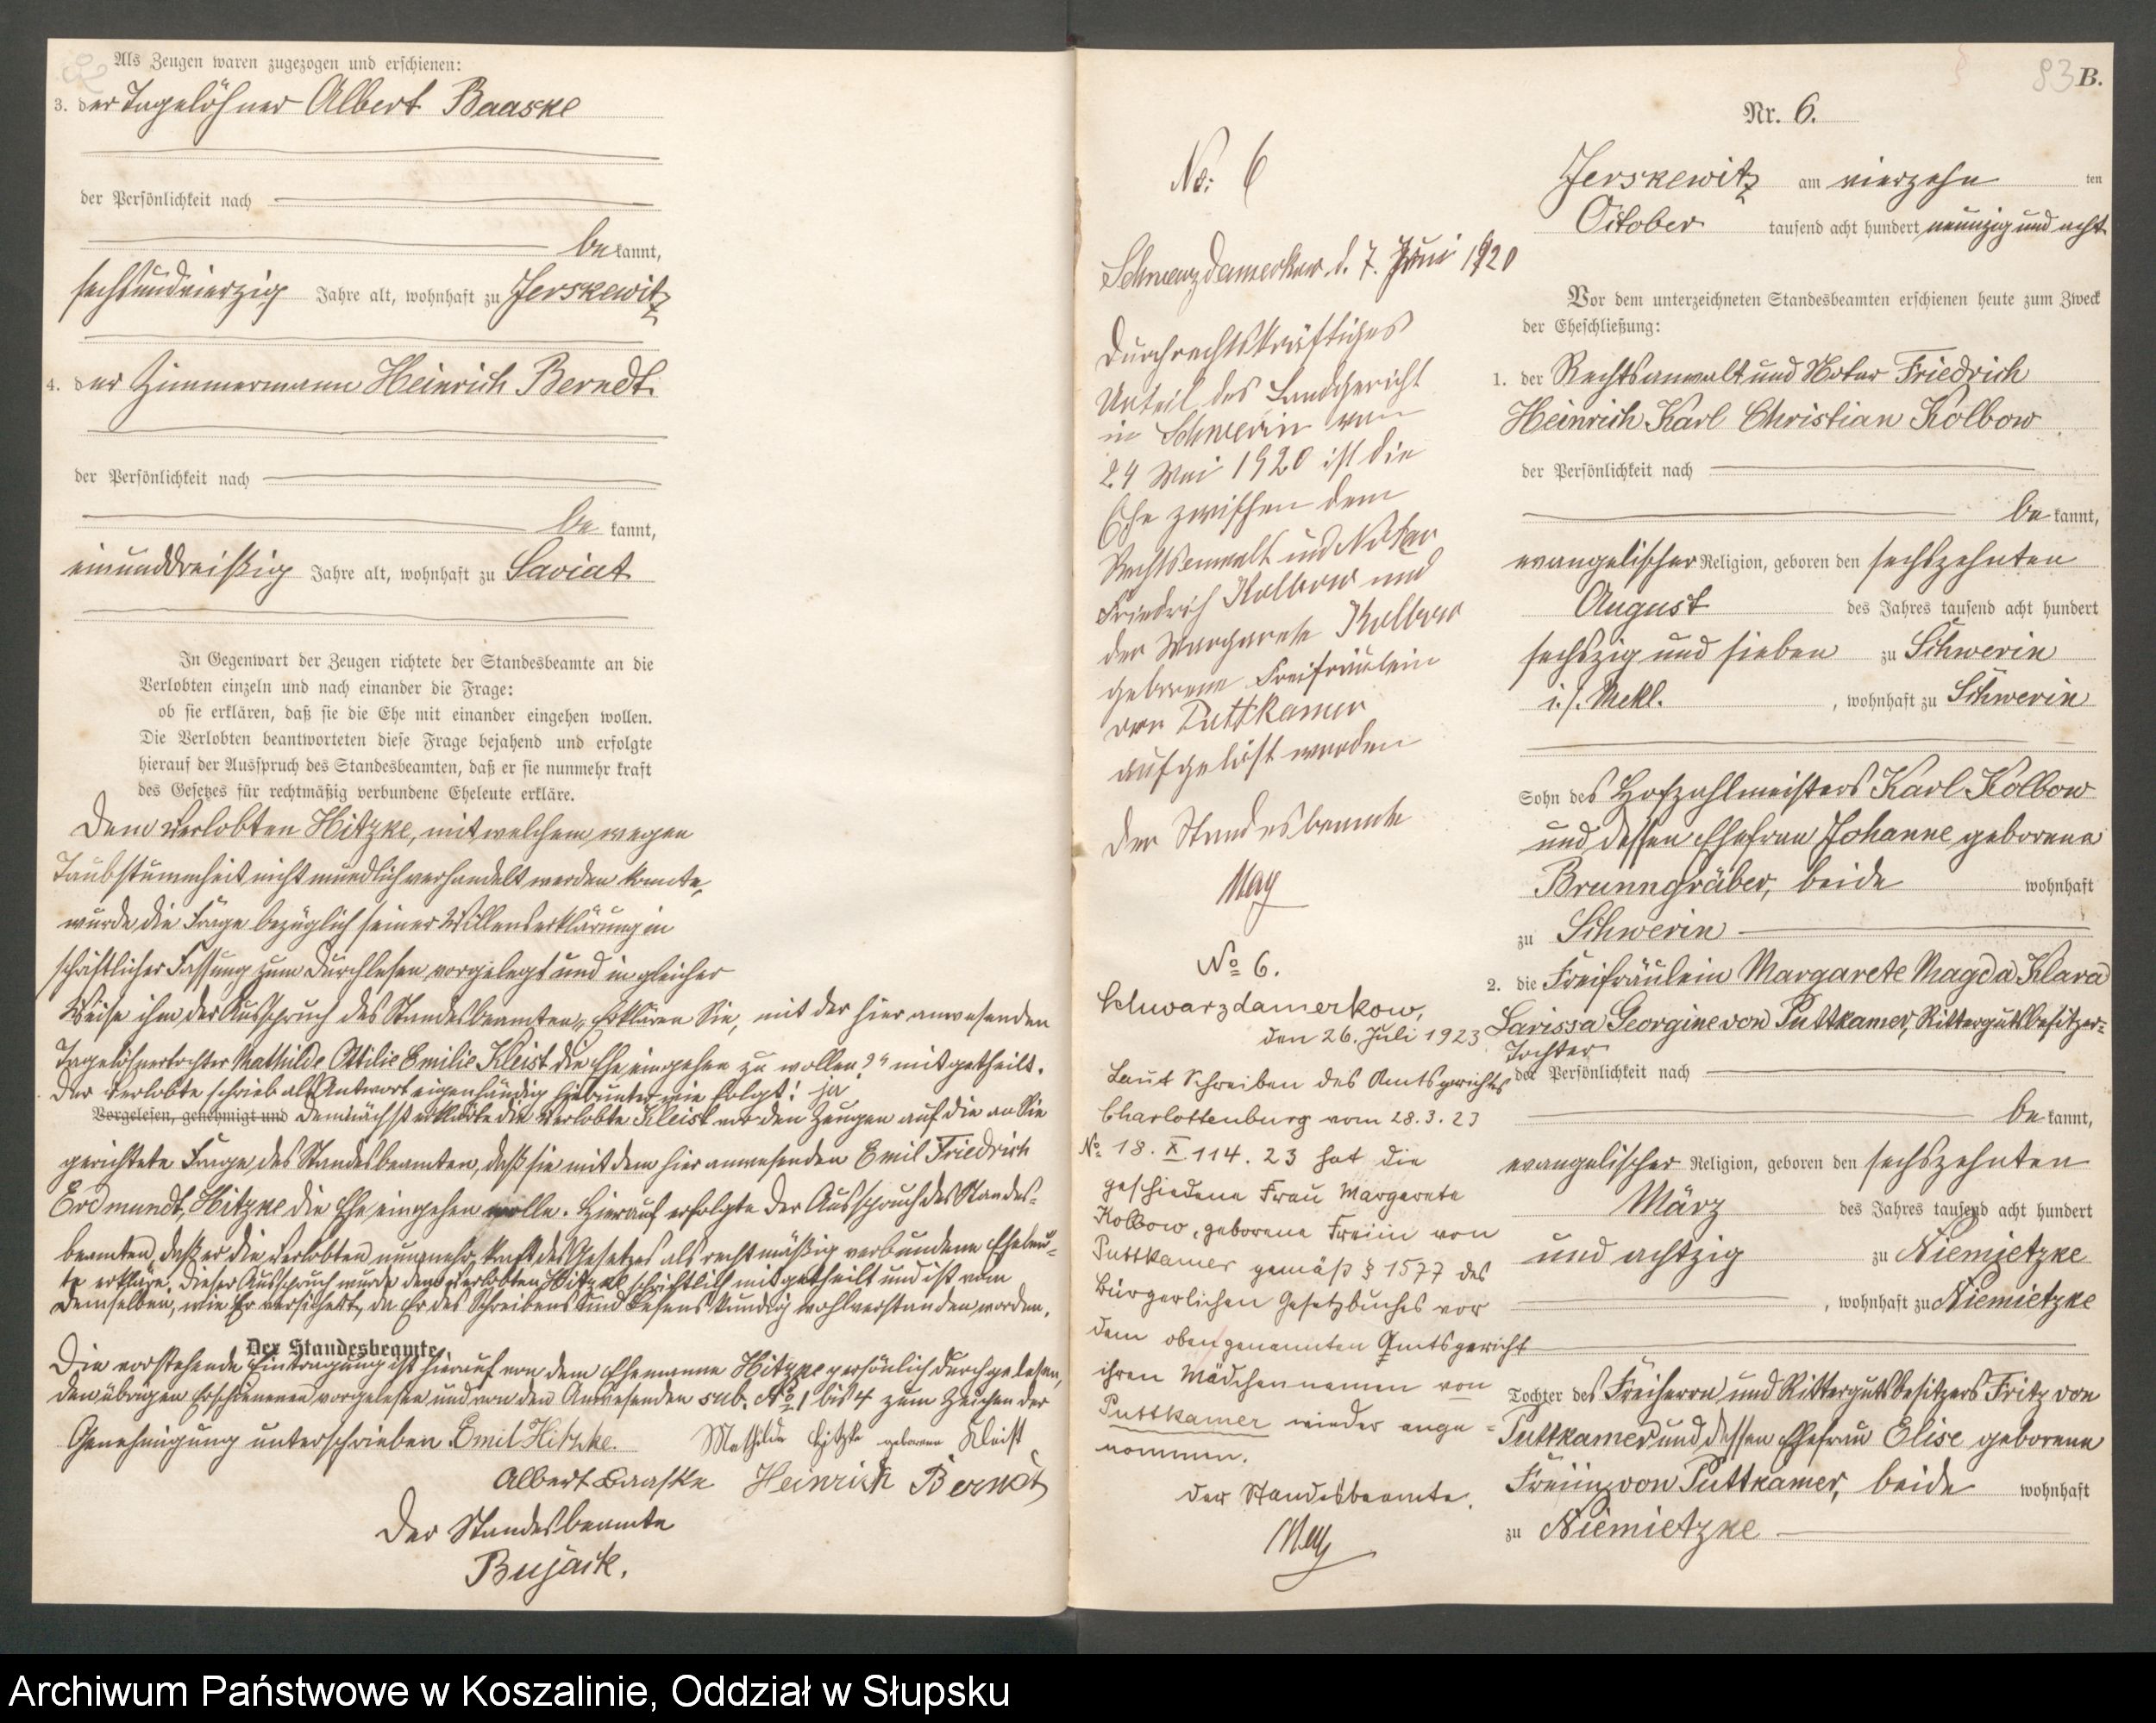 Als Zeugen waren zugezogen und erschienen:
3. der Tagelöhner Albert Baaske
der Persönlichkeit nach
be kannt,
sechsundvierzig Jahre alt, wohnhaft zu Jerskewitz
4. der Zimmermann Heinrich Berndt
der Persönlichkeit nach
be kannt,
einunddreißig Jahre alt, wohnhaft zu Saviat
In Gegenwart der Zeugen richtete der Standesbeamte an die
Verlobten einzeln und nach einander die Frage:
ob sie erklären, daß sie die Ehe mit einander eingehen wollen.
Die Verlobten beantworteten diese Frage bejahend und erfolgte
hierauf der Ausspruch des Standesbeamten, daß er sie nunmehr kraft
des Gesetzes für rechtmäßig verbundene Eheleute erkläre.
Dem Verlobten Hitzke, mit welchem wegen
Taubstummheit nicht mündlich verhandelt werden konnte,
wurde die Frage bezüglich seiner Willenserklärung in
schriftlicher Fassung zum Durchlesen vorgelegt und in gleicher
Weise ihm der Ausspruch des Standesbeamten „Erklären Sie, mit der hier anwesenden
Tagelöhnertochter Mathilde Ottilie Emilie Kleist die Ehe eingehen zu wollen?" mitgetheilt.
Der Verlobte schrieb als Antwort eigenhändig hierunter wie folgt: ja
Vorgelesen, genehmigt und Demnächst erklärte die Verlobte Kleist vor den Zeugen auf die an Sie
gerichtete Frage des Standesbeamten, daß sie mit dem hier anwesenden Emil Friedrich
Erdmundt, Hitzke die Ehe eingehen wolle. Hierauf erfolgte der Ausspruch des Standes-
beamten, daß er die Verlobten nunmehr kraft des Gesetzes als rechtmäßig verbundene Eheleu-
te erkläre. Dieser Ausspruch wurde dem Verlobten Hitzke schriftlich mitgetheilt und ist von
demselben, wie Er versichert, da Er des Schreibens und Lesens kundig wohlverstanden worden.
Der Standesbeamte
Die vorstehende Eintragung ist hierauf von dem Ehemanne Hitzke persönlich durchgelesen,
den übrigen Erschienenen vorgelesen und von den Anwesenden sub. No 1 bis 4 zum Zeichen der
Genehmigung unterschrieben. Emil Hitzke. Mathilde Hitzke geborene Kleist
Albert Baaske Heinrich Berndt
Der Standesbeamte
Bujack.
No: 6
Schwarzdamerkow d. 7. Juni 1920
Durch rechtskräftiges
Urteil des Landgericht
in Schwerin vom
24 Mai 1920 ist die
Ehe zwischen dem
Rechtsanwalt und Notar
Friedrich Kolbow und
der Margarete Kolbow
geborene Freifräulein
von Puttkamer
aufgelöst worden
Der Standesbeamte
May
No 6.
Schwarzdamerkow,
den 26. Juli 1923
Laut Schreiben des Amtsgerichts
Charlottenburg vom 28.3.23
No 18. X. 114. 23 hat die
geschiedene Frau Margarete
Kolbow, geborene Freiin von
Puttkamer gemäß § 1577 des
Bürgerlichen Gesetzbuches vor
dem obengenannten Amtsgericht
ihren Mädchennamen von
Puttkamer wieder ange-
nommen.
Der Standesbeamte.
May
83 B.
Nr. 6.
Jerskewitz am vierzehn ten
October tausend acht hundert neunzig und acht
Vor dem unterzeichneten Standesbeamten erschienen heute zum Zweck
der Eheschließung:
1. der Rechtsanwalt und Notar Friedrich
Heinrich Karl Christian Kolbow
der Persönlichkeit nach
be kannt,
evangelischer Religion, geboren den sechszehnten
August des Jahres tausend acht hundert
sechszig und sieben zu Schwerin
i./. Mekl. , wohnhaft zu Schwerin
Sohn des Hofzahlmeisters Karl Kolbow
und dessen Ehefrau Johanne geborene
Brunngräber, beide wohnhaft
zu Schwerin
2. die Freifräulein Margarete Magda Klara
Larissa Georgine von Puttkamer, Rittergutsbesitzer-
Tochter
der Persönlichkeit nach
be kannt,
evangelischer Religion, geboren den sechszehnten
März des Jahres tausend acht hundert
und achtzig zu Niemietzke
, wohnhaft zu Niemietzke
Tochter des Freiherrn und Rittergutsbesitzers Fritz von
Puttkamer und dessen Ehefrau Elise geborene
Freiin von Puttkamer, beide wohnhaft
zu Niemietzke
Archiwum Państwowe w Koszalinie, Oddział w Słupsku